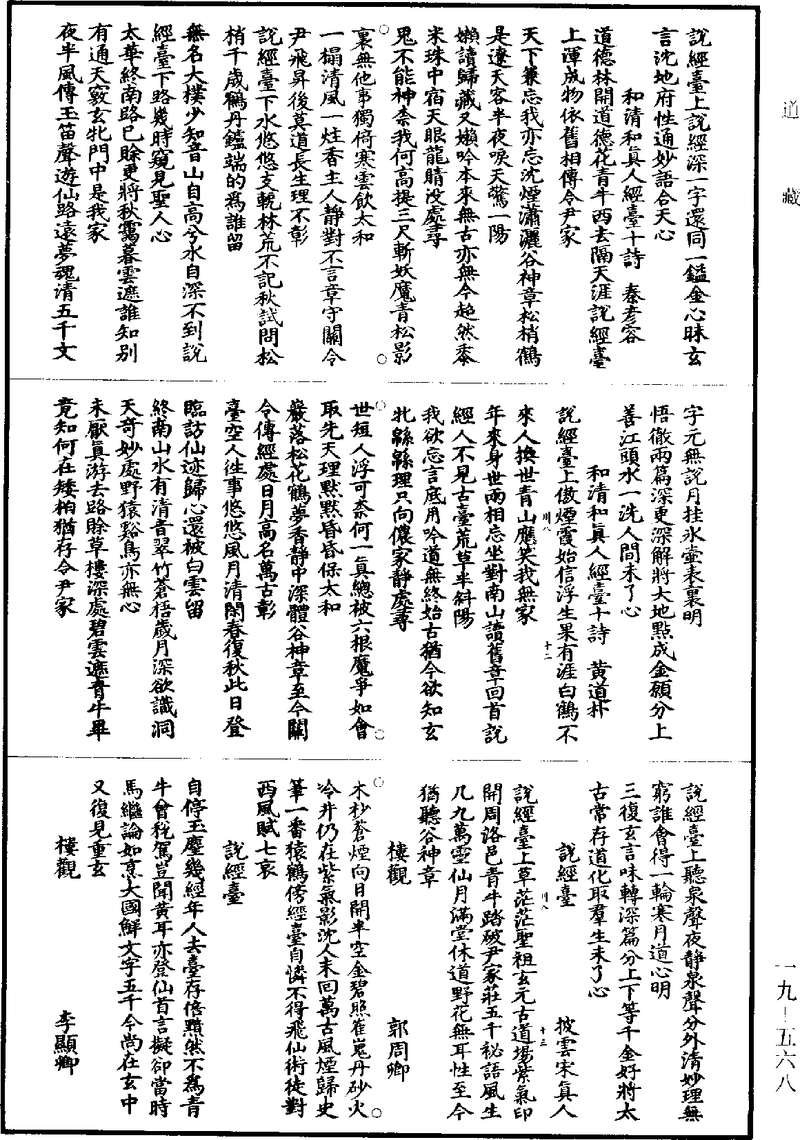 道藏
說經臺上說經深一字還同一鎰金心昧玄
言沈地府性通妙語合天心
和清和真人經臺十詩　秦彥容
道德林開道德花青牛西去隔天涯說經臺
上渾成物依舊相傳令尹家
天下兼忘我亦忘沈煙瀟灑谷神章松梢鶴
是遼天客半夜唳天驚一陽
嬾讀歸藏又嬾吟本來無古亦無今超然黍
米珠中宿天眼龍睛没處尋
鬼不能神柰我何高提三尺斬妖魔青松影
裏無他事獨倚寒雲飲太和
一榻清風一炷香主人靜對不言章守關令
尹飛昇後莫道長生理不彰
說經臺下水悠悠支輗林荒不記秋試問松
梢千歲鶴丹鑪端的為誰留
無名大樸少知音山自高兮水自深不到說
經臺下路幾時窺見聖人心
太華終南路已賒更將秋靄暮雲遮誰知別
有通天竅玄牝門中是我家
夜半風傳玉笛聲遊仙路遠夢魂清五千文
字元無說月挂氷壷表裏明
悟徹兩篇深更深解將大地點成金願分上
善江頭水一洗人間未了心
和清和真人經臺十詩　黄道朴
說經臺上傲煙霞始信浮生果有涯白鶴不
來人換世青山應笑我無家
年來身世兩相忘坐對南山讀舊章回首說
經人不見古臺荒草半斜陽
我欲忘言底用吟道無終始古猶今欲知玄
牝緜緜理只向儂家靜處尋
世短人浮可柰何一真總被六根魔爭如會
取先天理默默昏昏保太和
巖落松花鶴夢香靜中深體谷神章至今關
令傳經處日月高名萬古彰
臺空人往事悠悠風月清閑春復秋此日登
臨訪仙迹歸心還被白雲留
終南山水有清音翠竹蒼梧歲月深欲識洞
天奇妙處野猿谿鳥亦無心
未厭真游去路賒草樓深處碧雲遮青牛畢
竟知何在矮柏猶存令尹家
說經臺上聽泉聲夜靜泉聲分外清妙理無
窮誰會得一輪寒月道心明
三復玄言味轉深篇分上下等千金好將太
古常存道化取羣生未了心
說經臺　披雲宋真人
說經臺上草茫茫聖祖玄元古道場紫氣印
開周洛邑青牛踏破尹家莊五千祕語風生
几九萬靈仙月滿堂休道野花無耳性至今
猶聽谷神章
樓觀　郭周卿
木杪蒼煙向日開半空金碧照崔嵬丹砂火
冷井仍在紫氣影沈人未回萬古風煙歸史
筆一番猿鶴傍經臺自憐不得飛仙術徒對
西風賦七哀
說經臺
自停玉麈幾經年人去臺存倍黯然不為青
牛曾稅駕豈聞黄耳亦登仙首言擬卻當時
馬繼論如烹大國鮮文字五千今尚在玄中
又復見重玄
樓觀　李顯卿
川八
十二
川八
十三
一九—五六八